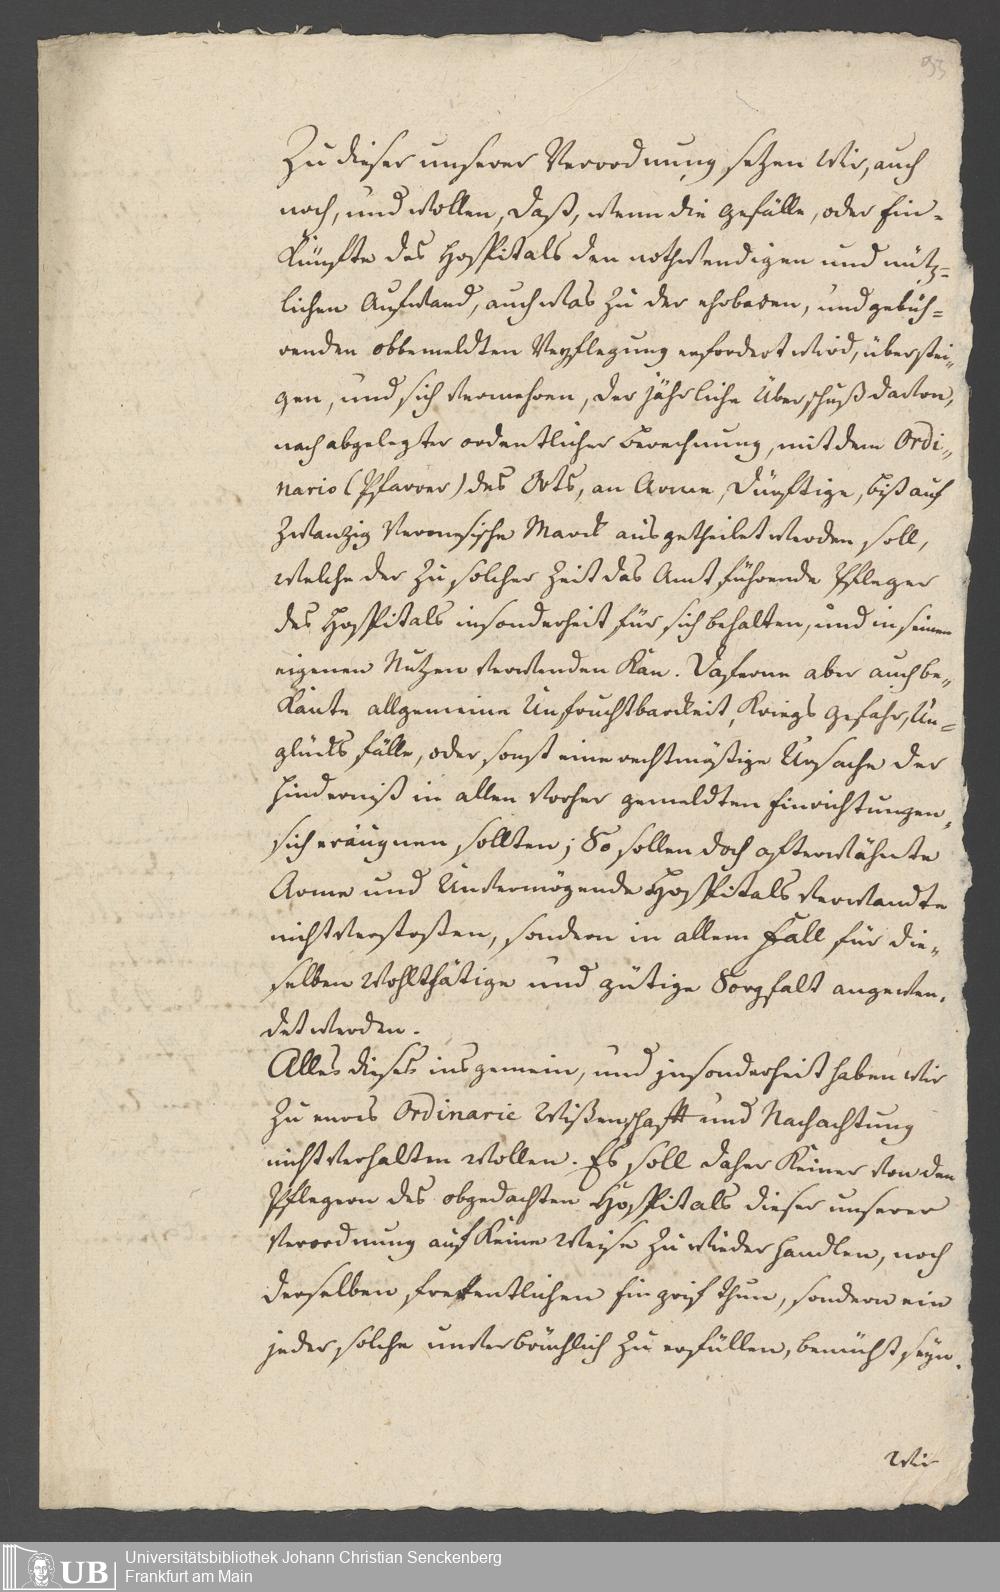 93
Zu dieser unserer Verordnung setzen Wir, auch
noch, und wollen, daß, wenn die Gefälle, oder Ein-
künfte des Hospitals den nothwendigen und nütz-
lichen Aufwand, auch was zu der ehrbaren, und gebüh-
renden obbemeldten Verpflegung erfordert wird, überstei-
gen, und sich vermehren, der jährliche Überschuß davon,
nach abgelegter ordentlicher Berechnung, mit dem Ordi-
nario (Pfarrer) des Orts, an Arme, Dürftige, biß auf
zwanzig Veronesische Marck ausgetheilet werden soll,
welche der zu solcher Zeit das Amt führende Pfleger
des Hospitals insonderheit für sich behalten, und in seinen
eigenen Nutzen verwenden kan. Daferne aber auch be-
kante allgemeine Unfruchtbarkeit, Kriegs Gefahr, Un-
glücks fälle, oder sonst eine rechtmäßige Ursache der
Hinderniß in allen vorher gemeldten Einrichtungen,
sich eräugnen sollten; So sollen doch ofterwähnte
Arme und Unvermögende Hospitals Verwandte
nicht verstoßen, sondern in allem Fall für die-
selben Wohlthätige und gütige Sorgfalt angewen-
det werden.
Alles dieses insgemein, und insonderheit haben wir
zu eures Ordinarie Wißenschafft und Nachachtung
nicht verhalten wollen. Es soll daher keiner von den
Pflegern des obgedachten Hospitals dieser unserer
Verordnung auf keine Weise zu wieder handlen, noch
derselben freffentlichen Eingrif thun, sondern ein
jeder solche unverbrüchlich zu erfüllen, bemüht seyn.
Wir
UB
Universitätsbibliothek Johann Christian Senckenberg
Frankfurt am Main